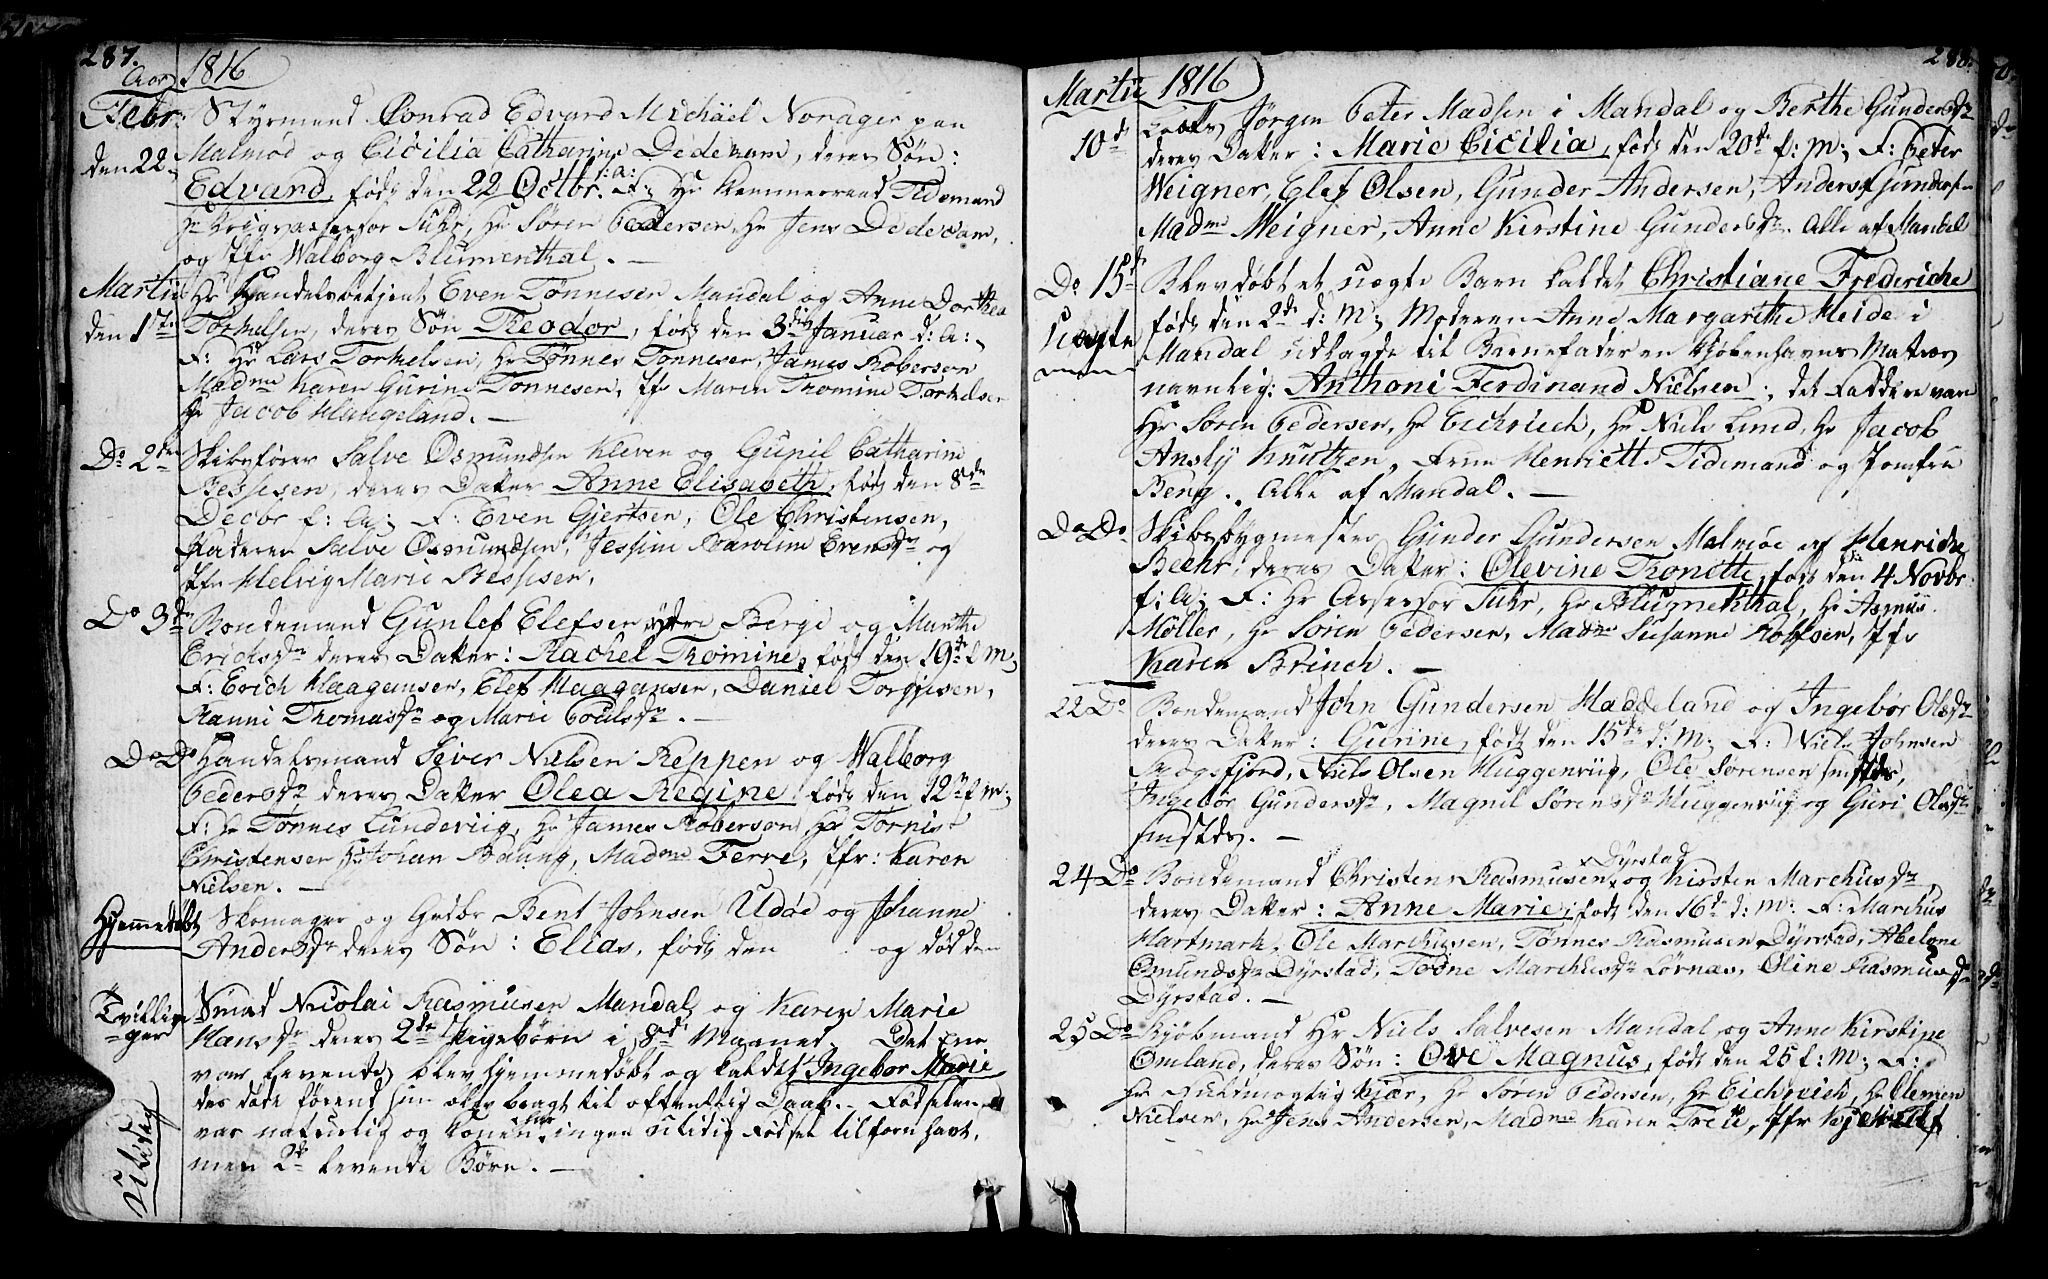 287.
Aar 1816
Febr: Styrmand Conrad Edvard Michäel Norager paa
den 22 Malmöd og Cicilia Catharine Dedekam, deres Sön:
Edvard, föds den 22 Octbr. f: a: F: Hr Kammerraad Tidemand
Hr Krigsassessor Suhr, Hr Sören Pedersen, Hr Jens Dedekam,
og Jfr Walborg Blumenthal. –
Martii Hr Handelsbetjent Even Tönnesen Mandal og Anne Dorthea
den 1ste Torkelsen, deres Sön Theodor, föds den 3die Januar d: a:
F: Hr Lars Torkelsen, Hr Tönnes Tönnesen, James Roberson
Madme Karen Gurine Tönnesen, Jfr Maren Thomine Torkelsen
Hr Jacob Haugeland. –
Do 2den Skibsförer Salve Osmundsen Kleven og Gunil Catharine
Bessesen, deres Datter Anne Elisabeth, föds den 8de
Decbr f: a: F: Even Gjertsen, Ole Christensen,
Faderen Salve Osmundsen, Jessine Karoline Evensdr og
Jfr Helvig Marie Bessesen.
Do 3de Bondemand Gunlef Elefsen ydre Berge og Marthe
Erichsdr deres Datter: Rachel Thomine, föds den 19de f. M:
F: Erich Haagensen, Elef Haagensen, Daniel Torgjusen,
Ranni Thomasdr og Marie Poulsdr. –
Do Do Handelsmand Siver Nielsen Reppen og Walborg
Pedersdr deres Datter Olea Regine föds den 12te f. M:
F: Hr Tönnes Lunderiig, Hr James Roberson, Hr Tönnis
Christensen Hr Johan Haung, Madme Ferre, Jfr: Karen
Nielsen. –
Hjemmedöbt Skomager og Gedbr Bent Johnsen Udöe og Johanne
Andersdr deres Sön: Elias, föds den og död den
Tvillin- Smed Nicolai Rasmusen Mandal og Karen Marie
ger Hansdr deres 2de Pigebörn i 8de Maaned. Det Ene
var levende, blev hjemmedöbt og kaldet Ingebor Marie
des döde förend hun blev bragt til offentlig Daab. – Födselen
var naturlig og Konen har ingen utidig Födsel tilforn havt,
men 2de levende Börn. –
Utidig
288.
Martii 1816
10de Jörgen Peter Madsen i Mandal og Berthe Gundersdr
deres Datter: Marie Cicilia, föds den 20de f: M: F: Peter
Weigner, Elef Olsen, Gunder Andersen, Anders Gundersen
Madme Weigner, Anne Kirstine Gundersdr. Alle af Mandal
Do 15de Blev döbt et uægte Barn kaldet Christiane Frederiche
Uægte föds den 2de d: M: Moderen Anne Margarethe Heide i
Mandal udlagde til Barnefader en Kjöbenhavns Matros
navnlig: Anthoni Ferdinand Nielsen; det Faddere var
Hr Sören Pedersen, Hr Eichrich, Hr Niels Lund, Hr Jacob
Knutzen, Frue Henriette Tidemand og Jomfru
Beng. Alle af Mandal. –
Do Do Skibsbygmester Gunder Gundersen Malmöe og Henriche
Beehr deres Datter: Olevine Tronette, föds den 4 Novbr
f: a: F: Hr Assessor Suhr, Hr Blumenthal, Hr Asmus
Möller, Hr Sören Pedersen, Madme Susanne Roffsen, Jfr
Karen Brinch. –
22 Do Bondemand John Gundersen Haddeland og Ingebör Olsdr
deres Datter: Gurine, föds den 15de d: M: F: Niels Johnsen
Skogsfjord, Niels Olsen Huggenriig, Ole Sörensen smstds,
Ingebör Gundersdr, Magnil Sörensdr Huggenriig og Guri Olsdr
smstds. –
24 Do Bondemand Christen Rasmusen Dyrstad og Kirsten Marchusdr
deres Datter: Anne Marie, föds den 16de d: M: F: Marchus
Hartmark, Ole Marchusen, Tönnes Rasmusen Dyrstad, Abelone
Omundsdr Dyrstad, Tróne Marchusdr Lörnæs, Oline Rasmusdr
Dyrstad. –
25 Do Kjöbmand Hr Niels Salvesen Mandal og Anne Kirstine
Omland, deres Sön: Ove Magnus, föds den 25 f: M: F:
Hr Kjær, Hr Sören Pedersen, Hr Eichrich, Hr Clemen
Nielsen, Hr Jens Andersen, Madme Karen Treü, Jfr